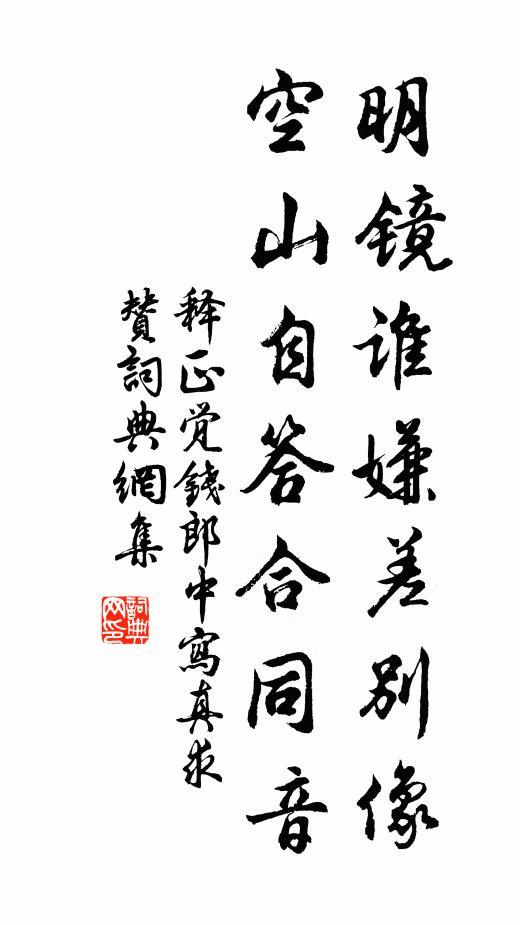 明镜谁嫌差别像
空山自答合同音
释正觉錢郎中寫真求
贊詞典網集
詞典网印